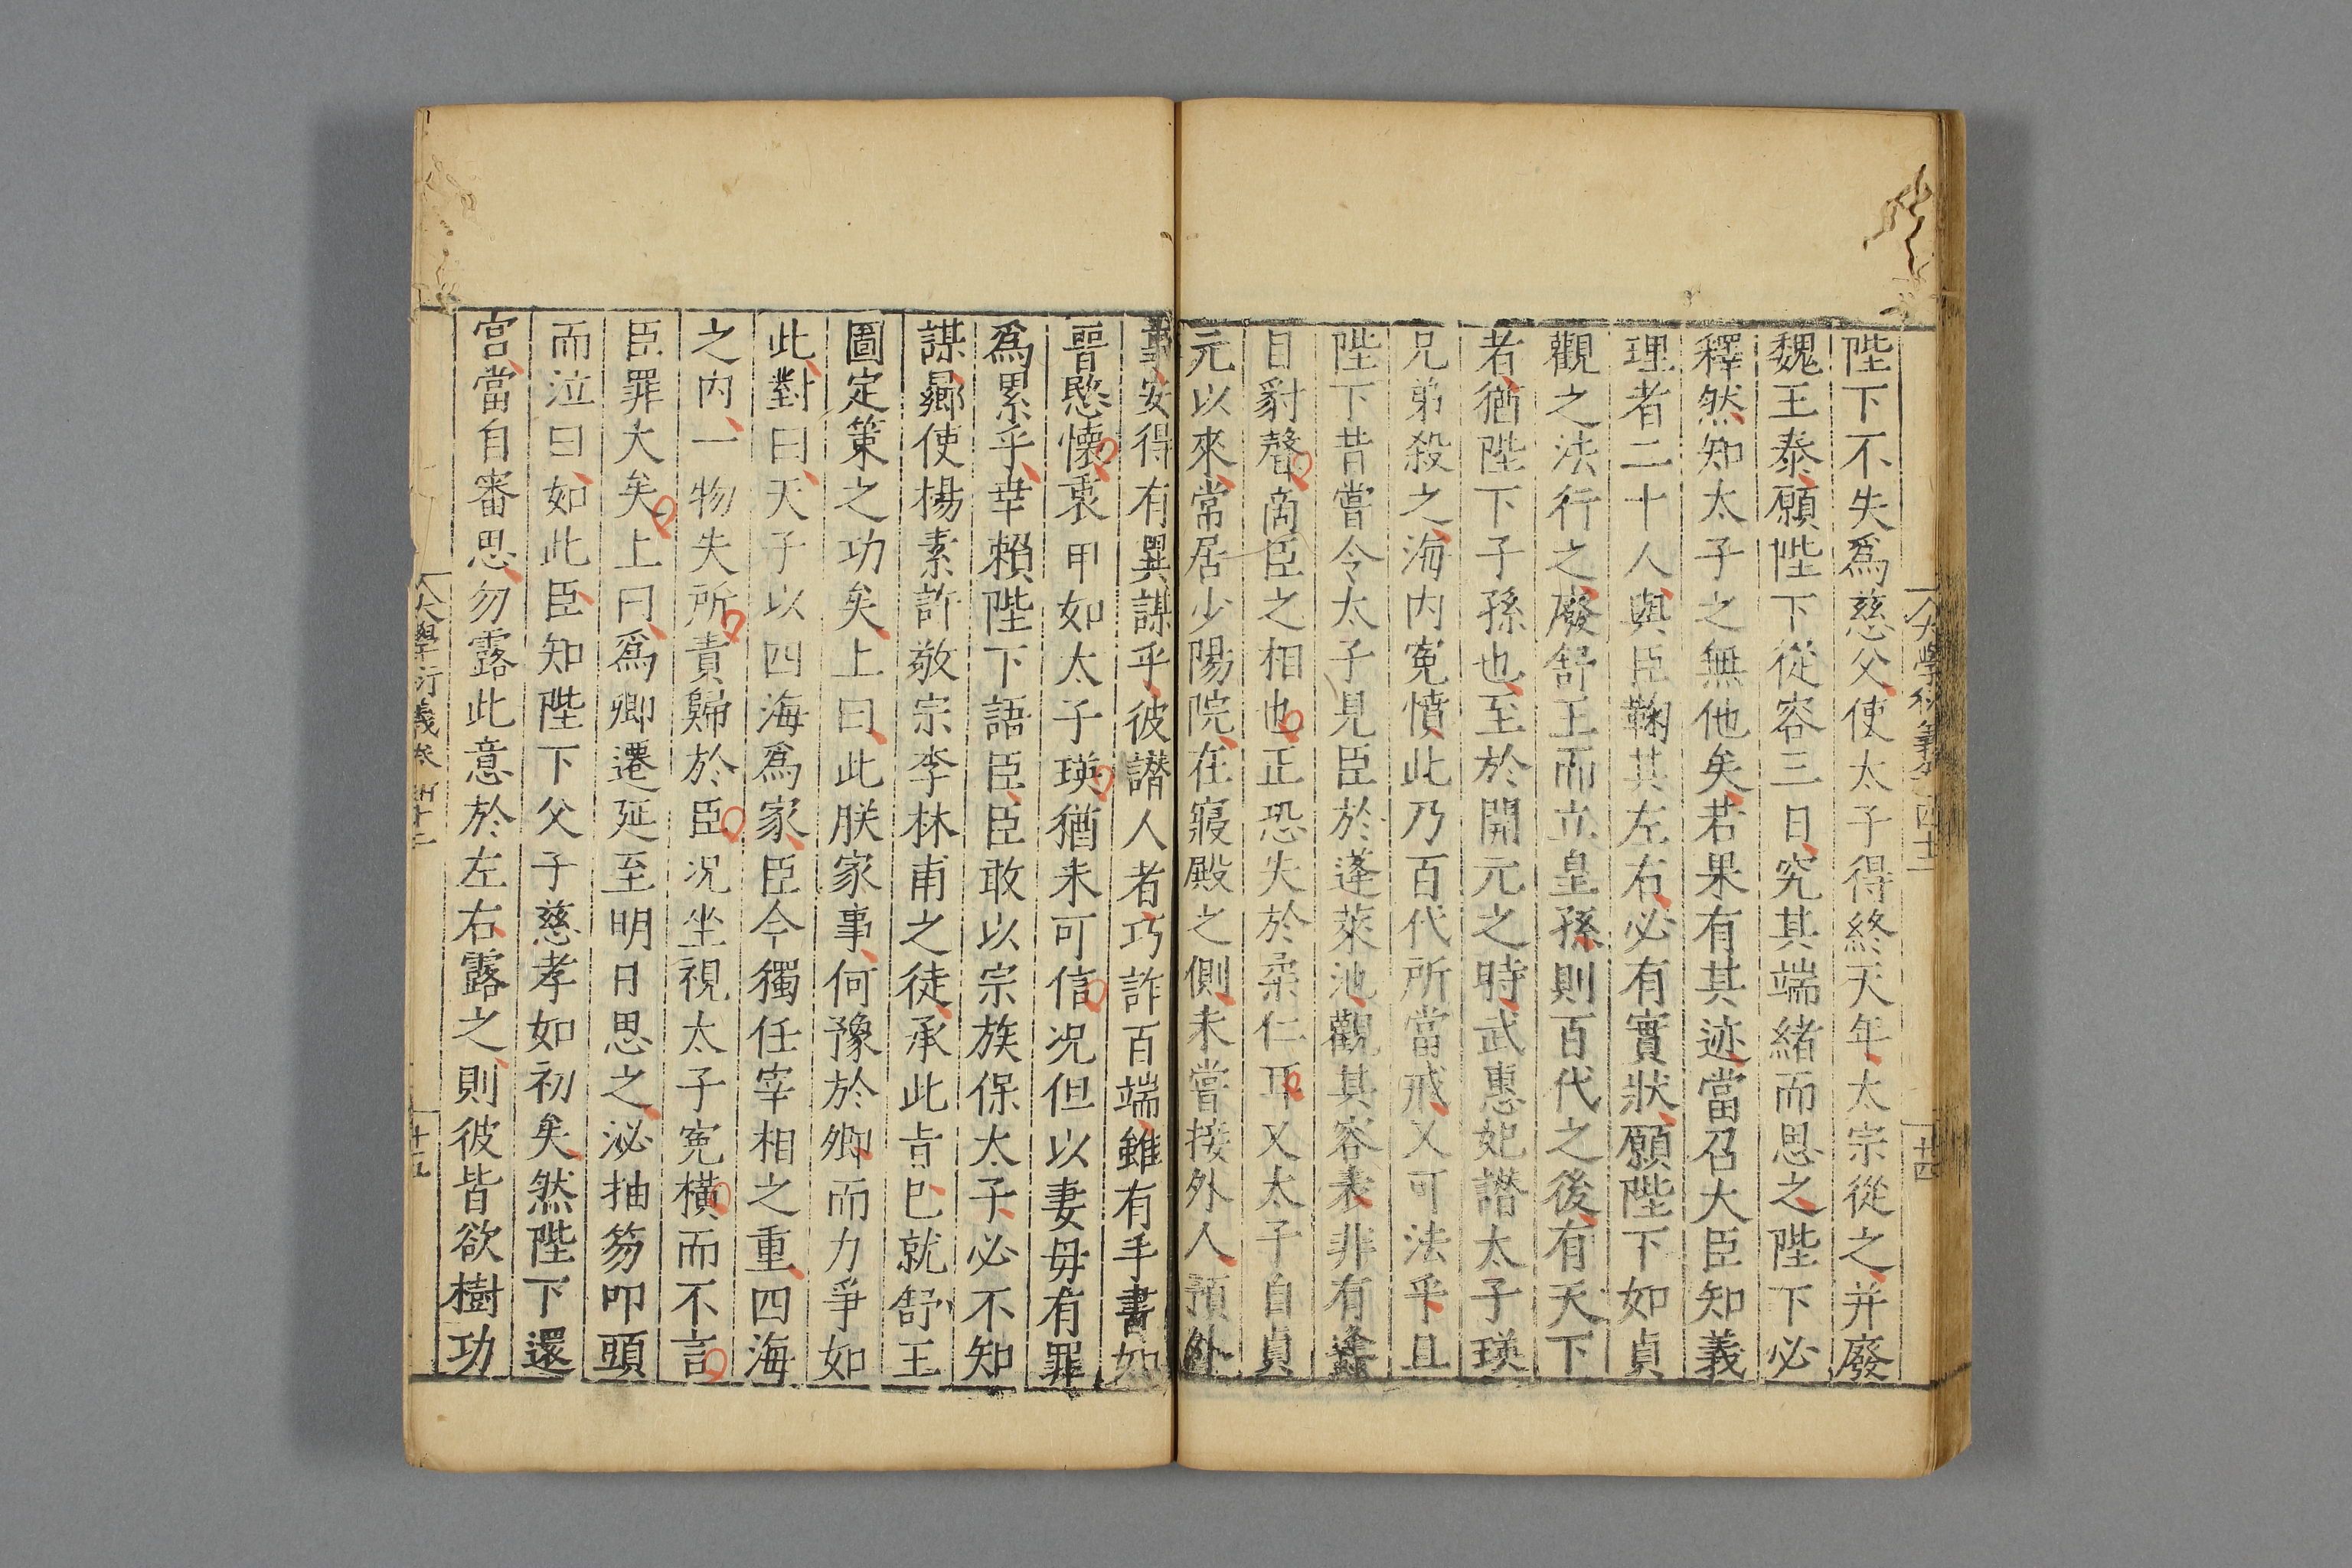 陛下不失爲慈父使太子得終天年太宗從之并廢
魏王泰願陛下從容三日究其端緒而思之陛下必
釋然知太子之無他矣若果有其迹當召大臣知義
理者二十人與臣鞠其左右必有實狀願陛下如貞
觀之法行之廢舒王而立皇孫則百代之後有天下
者猶陛下子孫也至於開元之時武惠妃譖太子瑛
兄弟殺之海内寃憤此乃百代所當戒又可法乎且
陛下昔嘗令太子見臣於蓬萊池觀其容表非有蠭
目豺聲啇臣之相也正恐失於柔仁耳又太子自貞
元以來常居少陽院在寢殿之側未嘗接外人預外
事安得有異謀乎彼譖人者巧詐百端雖有手書如
晉愍懷衷甲如太子瑛猶未可信况但以妻母有罪
爲累乎幸賴陛下語臣臣敢以宗族保太子必不知
謀曏使楊素許敬宗李林甫之徒承此㫖已就舒王
圖定策之功矣上曰此朕家事何豫於卿而力爭如
此對曰天子以四海爲家臣今獨任宰相之重四海
之内一物失所責歸於臣况坐視太子寃横而不言
臣罪大矣上曰爲卿遷延至明日思之泌抽笏叩頭
而泣曰如此臣知陛下父子慈孝如初矣然陛下還
宮當自審思勿露此意於左右露之則彼皆欲樹功
大學衍義卷四十二
十四
大學衍義卷四十二
十五